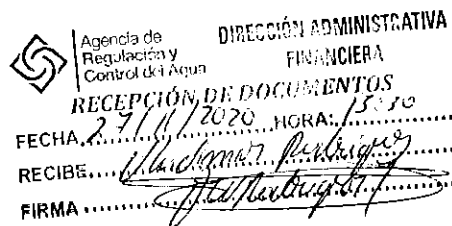 Agencia de
Regulación y
Control del Agua
DIRECCIÓN ADMINISTRATIVA
FINANCIERA
RECEPCIÓN DE DOCUMENTOS
FECHA 27/11/2020 HORA: 15:30
RECIBE Rodríguez
FIRMA